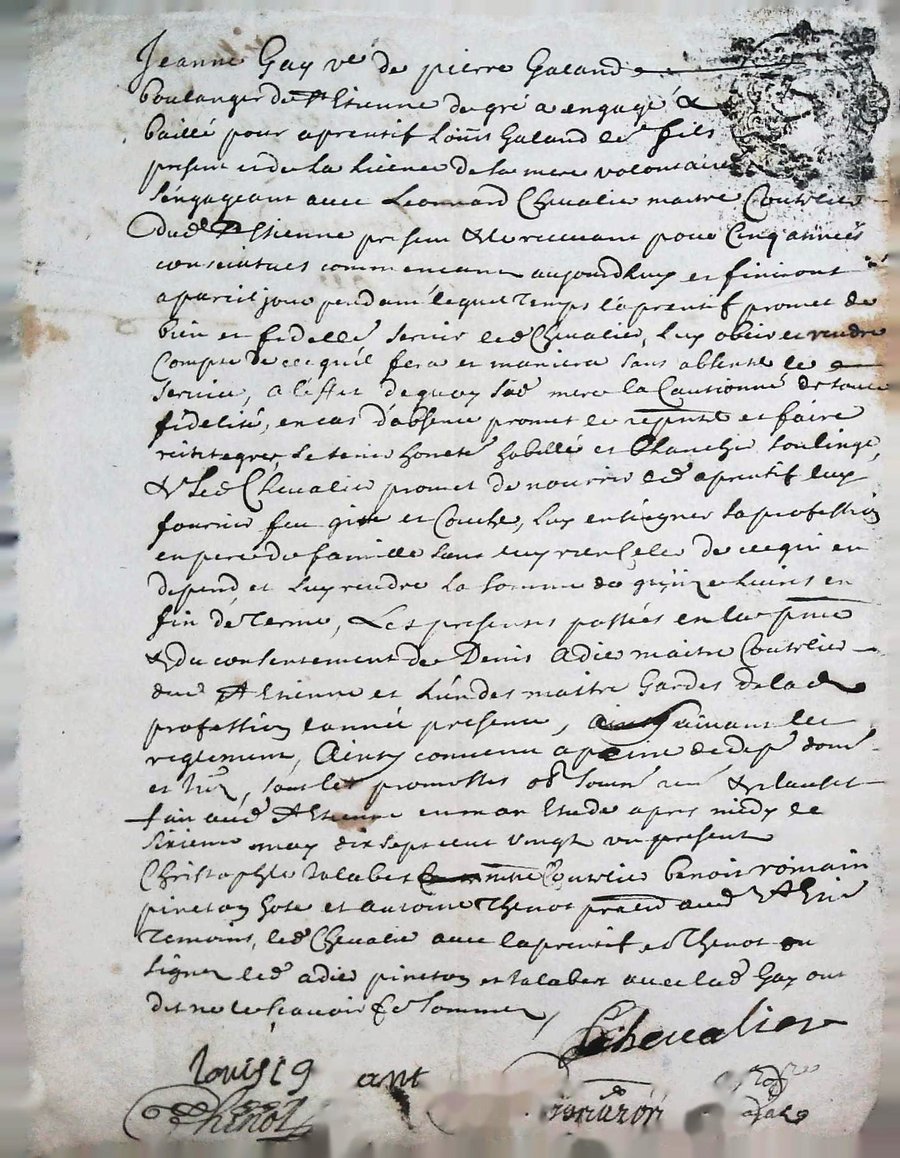 Jeanne Gay ve de pierre Galand
boulanger de St Etienne de gré a engagé &
baillé pour aprentif Louis Galand led fils
present et de la licence de la mere volontaire
s'engageant avec Leonnard Chevalier maitre Coutelier
dud St Etienne present & le recevant pour Cinq années
consecutives commencant aujourdhuy et finiront a
a pareil jour pendant lequel temps l'aprentif promet de
bien et fidelle servir led Chevalier, luy obeir et rendre
Compte de ce qu'il fera et maniera sans absenter le
service, a l'effet de quoy sad mere la Cautionne de toute
fidelité, en cas d'absence promet le et faire
reintegrer, le tenir honete habillé et Chaussé, soulinge,
& led Chevalier promet de nourrir led aprentif luy
fournir feu gite et Couche, luy enseigner sa profession
en pere de famille sans luy rien celer de ce qui en
depend et luy rendre la somme de quinze livres en
fin de terme, Les presentes passées en la pnce
& du consentement de Denis adie maitre Coutelier
dud St Etienne et l'un des maitre Gardes de lad
profession l'année presente, suivant les
reglement, Ainsy convenu a peine de dep dom
et int, sous les promesses obs soum ren & clauses
fait aud St Etienne en mon Etude apres midy le
sixieme may dix sept cent vingt un present
Christophle talabert me Coutelier benoit romain
pineton hote et antoine Thenot pratn aud St Etne
temoins, led Chevalier avec l'aprentif et Thenot on
signez led adie pineton et talabert avec lad Gay ont
dit ne le scavoir & sommez
Chevalier
louis g ant
Thenot